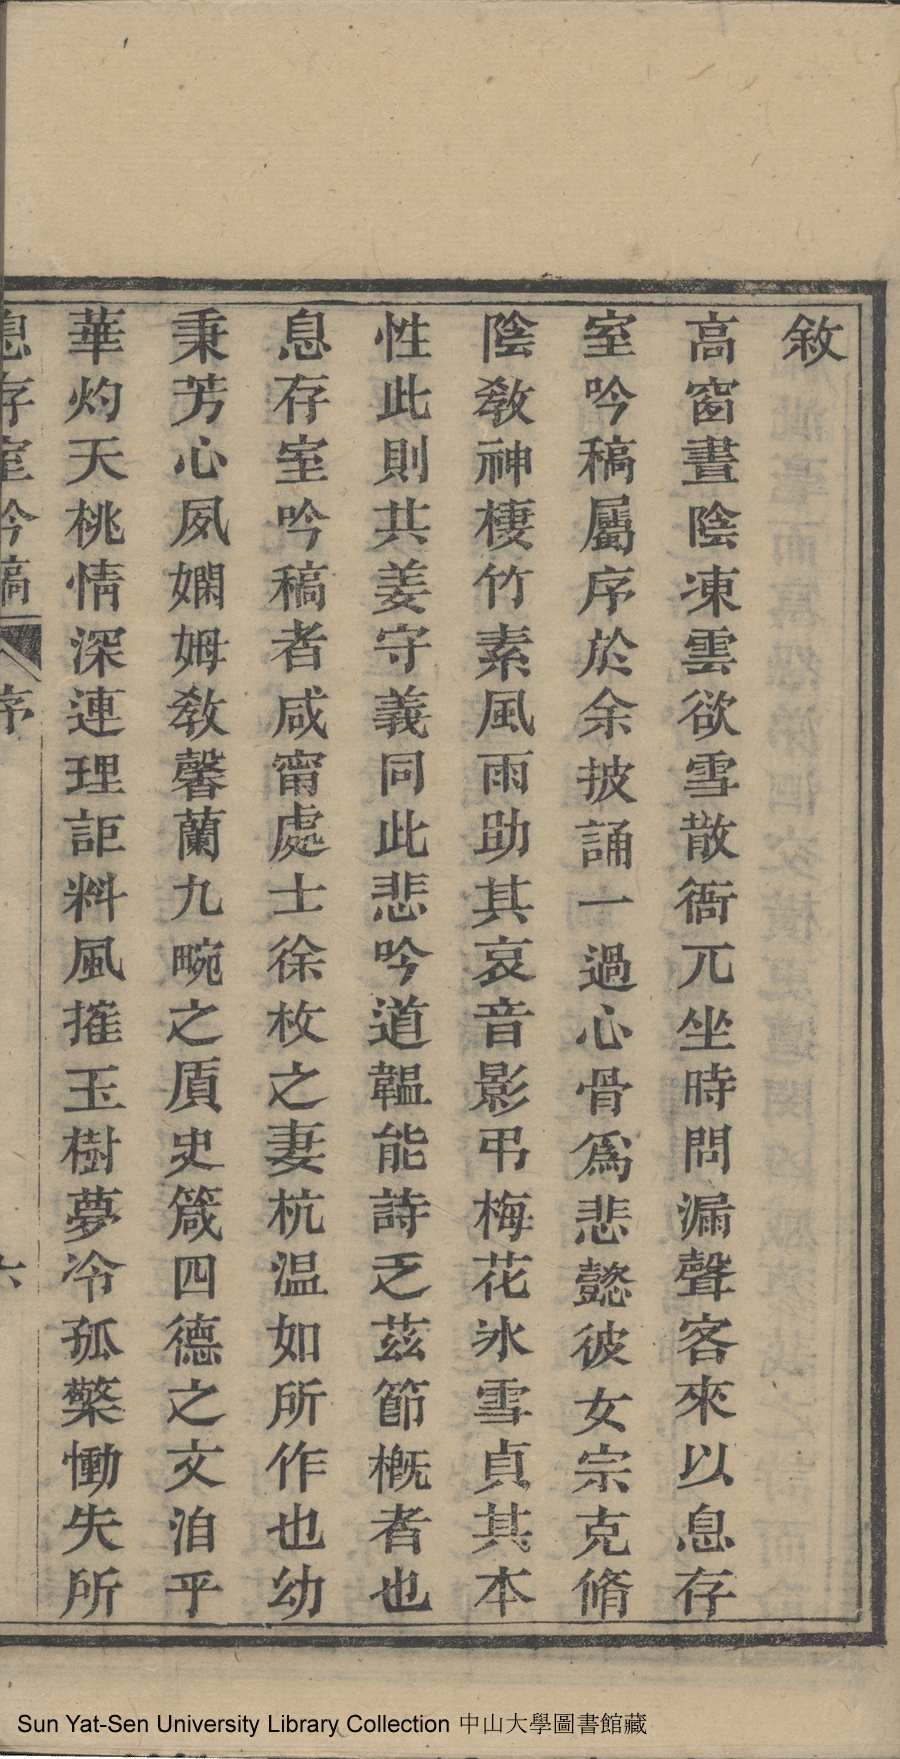 敘
高窗晝陰凍雲欲雪散衙兀坐時問漏聲客來以息存
室吟稿屬序於余披誦一過心骨爲悲懿彼女宗克脩
陰敎神棲竹素風雨助其哀音影弔梅花氷雪貞其本
性此則共姜守義同此悲吟道韞能詩乏茲節槪者也
息存室吟稿者咸甯處士徐枚之妻杭温如所作也幼
秉芳心夙嫻姆敎馨蘭九畹之貭史箴四德之文洎乎
華灼夭桃情深連理詎料風摧玉樹夢冷孤檠慟失所
息存室吟稿 序 六
Sun Yat-Sen University Library Collection 中山大學圖書館藏